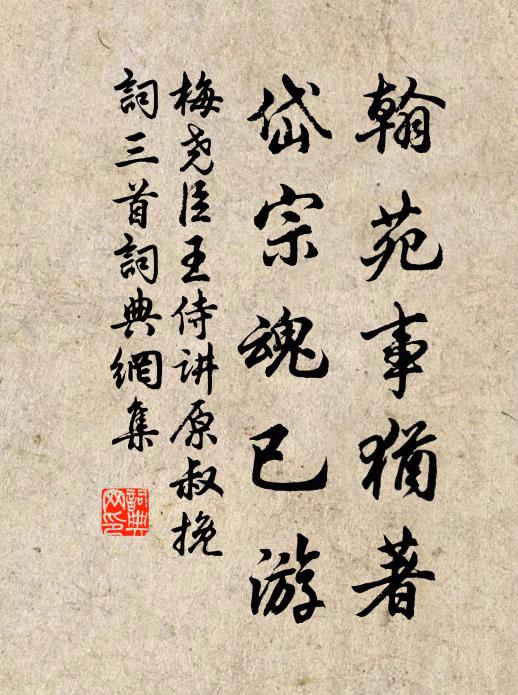 翰苑事猶著
岱宗魂已游
梅尧臣王侍讲原叔挽
詞三首詞典網集
詞典网印